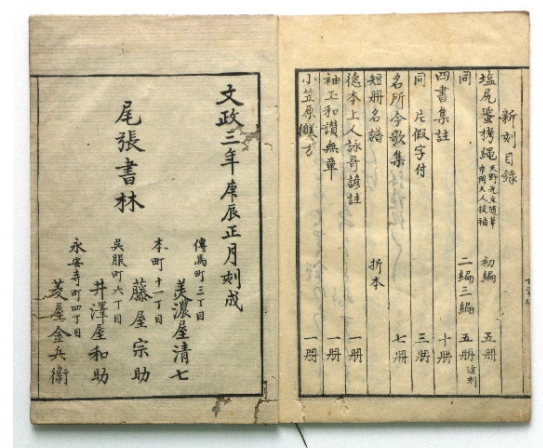 新刻目録
塩尻 天野先生随筆 初編 五册
同 二編三編 五册 追刻
四書集註 十册
同 片假字付 三册
名所今歌集 七册
短册名譜 折本
德本上人詠哥諺註 一册
袖玉和讃無章 一册
小笠原 方 一册
文政三年庚辰正月刻成
尾張書林
傳馬町三丁目
美濃屋清七
本町十一丁目
藤屋宗助
吳服町六丁目
井澤屋和助
永安寺町四丁目
菱屋金兵衛